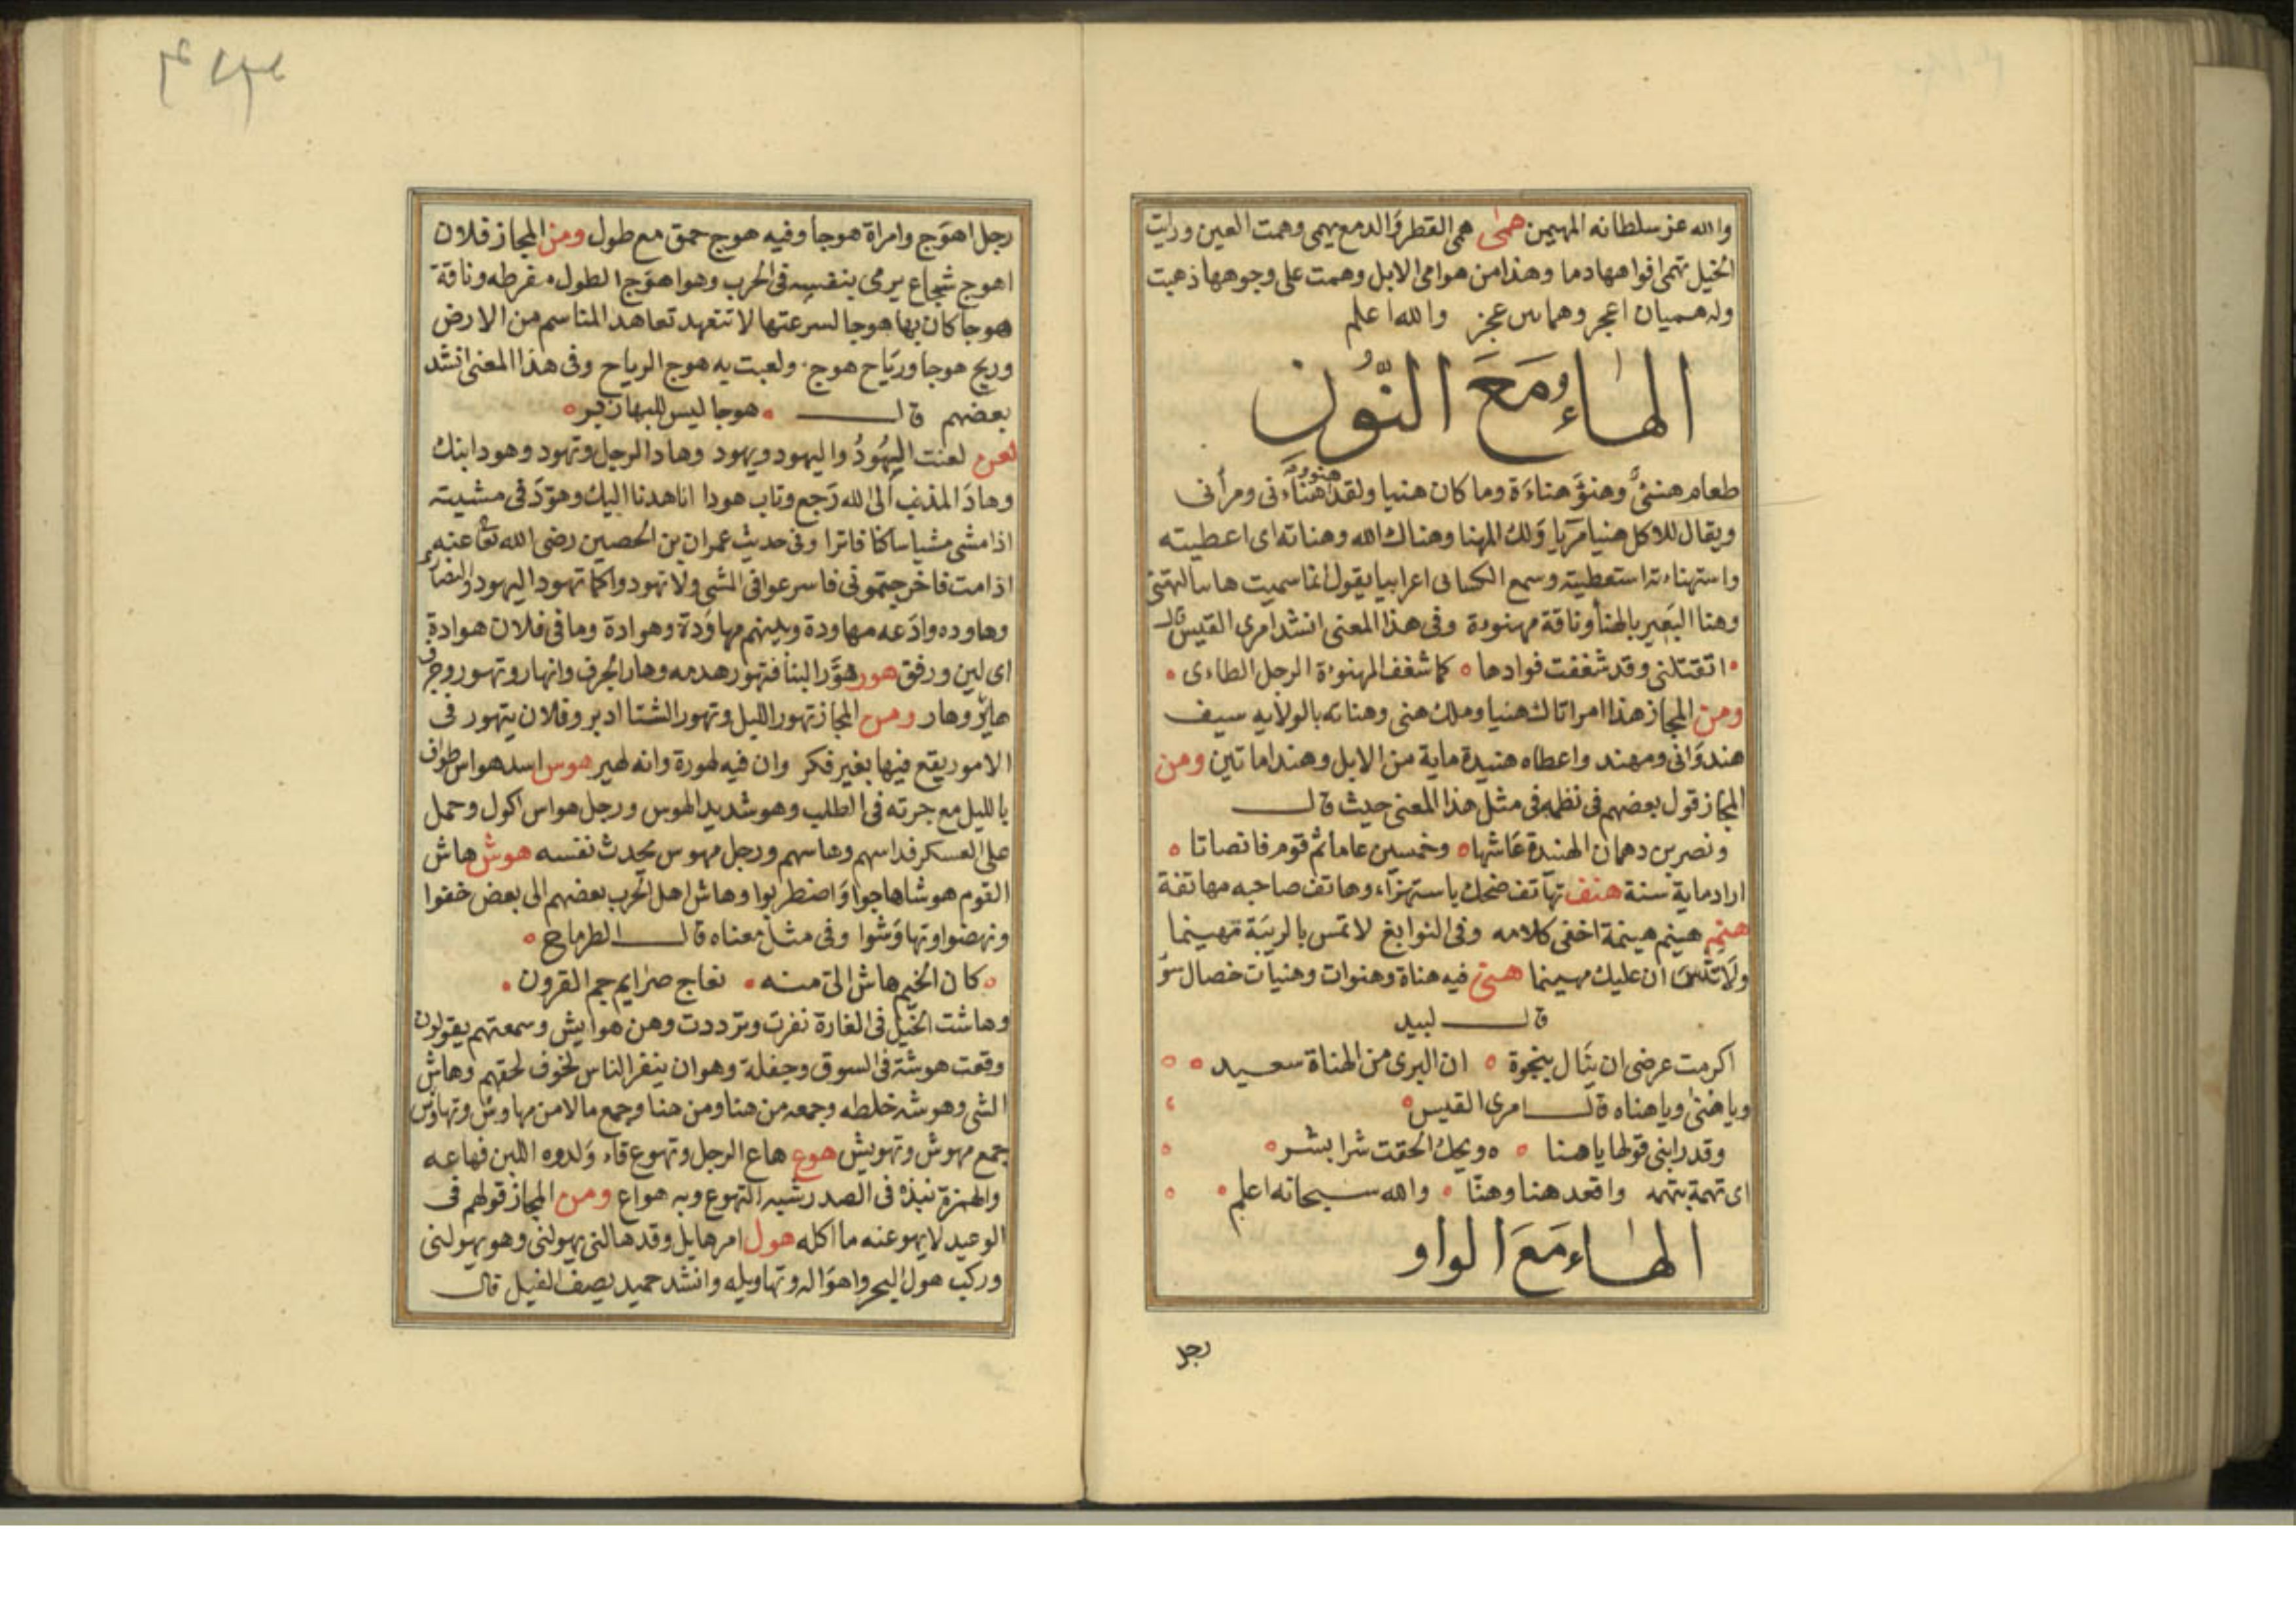 والله عز سلطانه المهيمن همى همى القطر والدمع يهمى وهمت العين ورايت
الخيل تهمى افواهها دما وهذا من هوامى الابل وهمت على وجوهها ذهبت
وله هميان اعجر وهمايين عجز والله اعلم
الهاء مع النون
طعام هنئ وهنؤ هناءة وما كان هنيا ولقد هنؤ هناءنى ومرأنى
ويقال للاكل هنيا مريا ولك المهنا وهناك الله وهناته اى اعطيته
واستهناءته استعطيته وسمع الكسائى اعرابيا يقول انما سميت هانيا لتهنئ
وهنا البعير بالهنأ وناقة مهنوءة وفى هذا المعنى انشد امرى القيس قال
اتقتلنى وقد شغفت فوادها كما شغف المهنوءة الرجل الطاءى
ومن المجاز هذا امر اتاك هنيا وملك هنى وهناته بالولايه سيف
هندوانى ومهند واعطاه هنيدة ماية من الابل وهندا ماتين ومن
المجاز قول بعضهم فى نظمه فى مثل هذا المعنى حيث قال
ونصر بن دهمان الهنيدة عاشها وخمسين عاما ثم قوم فانصاتا
اراد ماية سنة هنف تهاتف ضحك باستهزاء وهاتف صاحبه مهاتفة
هنم هينم هينمة اخفى كلامه وفى النوابغ لا تمس بالريبة مهينما
ولا تنس ان عليك مهيمنا هنى فيه هناة وهنوات وهنيات خصال سوء
قال لبيد
اكرمت عرضى ان ينال بنجوة ان البرى من الهناة سعيد
وياهنى وياهناه قال امرى القيس
وقد رابنى قولها ياهنا ه ويحك الحقت شرا بشر
اى تهمة بتهمه واقعد هنا وهنا والله سبحانه اعلم
الهاء مع الواو
رجل
رجل اهوج وامراة هوجا وفيه هوج حمق مع طول ومن المجاز فلان
اهوج شجاع يرمى بنفسه فى الحرب وهو اهوج الطول مفرطه وناقة
هوجا كان بها هوجا لسرعتها لا تتعهد تعاهد المناسم من الارض
وريح هوجا ورياح هوج ولعبت به هوج الرياح وفى هذا المعنى انشد
بعضهم قال هوجا ليس للبها زبر
لعن لعنت اليهود واليهود ويهود وهاد الرجل وتهود وهود ابنك
وهاد المذنب الى الله رجع وتاب هودا انا هدنا اليك وهود فى مشيته
اذا مشى مشيا ساكنا فاترا وفى حديث عمران بن الحصين رضى الله تعا عنه
اذا مت فاخرجتمونى فاسرعوا فى المشى ولا تهودوا كما تهود اليهود والنصارى
وهاوده وادعه مهاودة وبينهم مهاودة وهوادة وما فى فلان هوادة
اى لين ورفق هور هور البنا فتهور هدمه وهار الجرف وانهار وتهور وجرف
هائر وهار ومن المجاز تهور الليل وتهور الشتا ادبر وفلان يتهور فى
الامور يقع فيها بغير فكر وان فيه لهورة وانه لهير هوس اسد هواس طواف
بالليل مع جرته فى الطلب وهو شديد الهوس ورجل هواس اكول وحمل
على العسكر فداسهم وهاسهم ورجل مهوس يحدث نفسه هوش هاش
القوم هوشا هاجوا واضطربوا وهاش اهل الحرب بعضهم الى بعض خفوا
ونهضوا وتهاوشوا وفى مثل معناه قال الطرماح
كان الخيم هاش الى منه نعاج صرايم جم القرون
وهاشت الخيل فى الغارة نفرت وترددت وهن هوايش وسمعتهم يقولون
وقعت هوشة فى السوق وجفلة وهو ان ينفر الناس لخوف لحقهم وهاش
الشى وهوشه خلطه وجمعه من هنا ومن هنا وجمع مالا من مهاوش وتهاوش
جمع مهوش وتهويش هوع هاع الرجل وتهوع قاء ولدوه اللبن فهاعه
والهمزة نبذة فى الصدر شبه التهوع وبه هواع ومن المجاز قولهم فى
الوعيد لا يهوعنه ما اكله هول امر هايل وقد هالنى يهولنى وهو يهولنى
وركب هول البحر واهواله وتهاويله وانشد حميد يصف الفيل قال